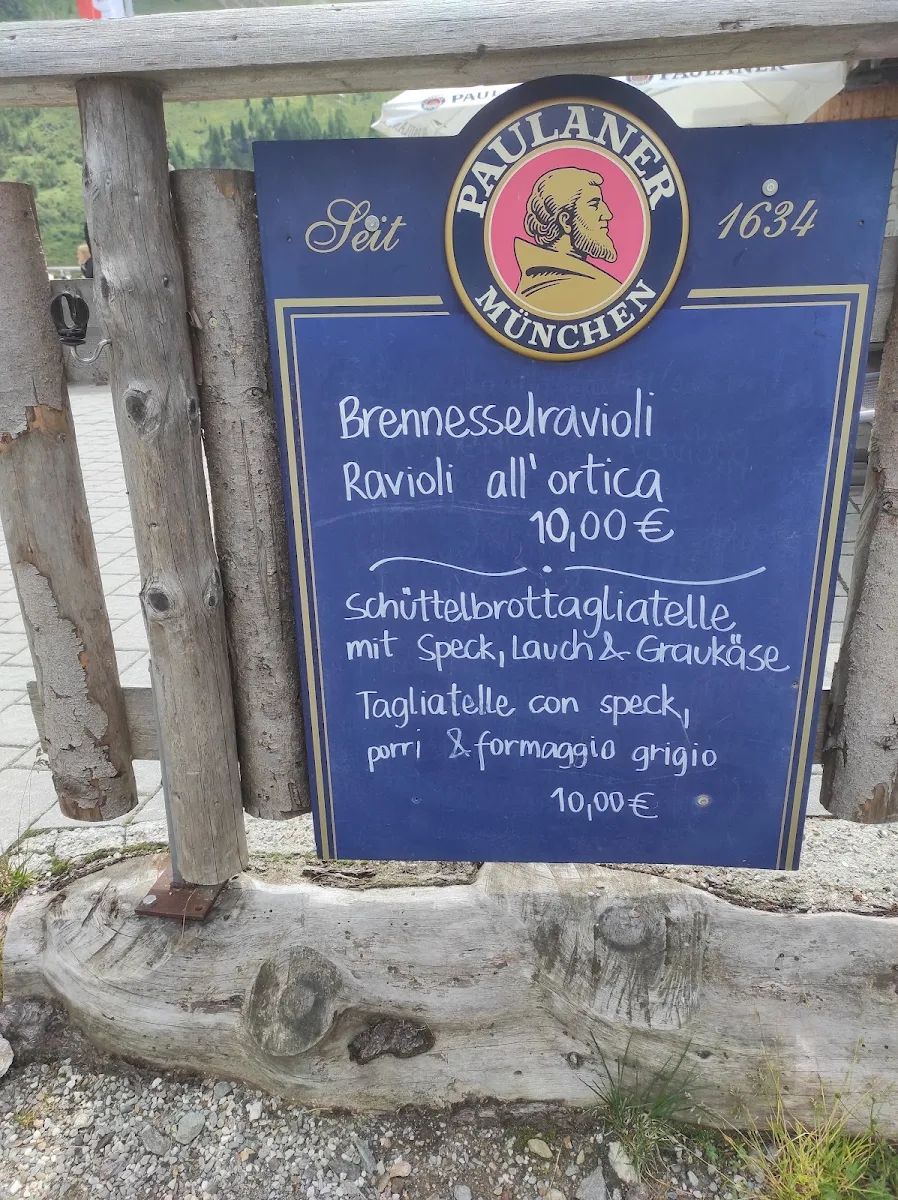 PAULANER
PAULANER
PAULANER
Seit
1634
MÜNCHEN
Brennesselravioli
Ravioli all'ortica
10,00 €
Schüttelbrottagliatelle
mit Speck, Lauch & Graukäse
Tagliatelle con speck,
porri & formaggio grigio
10,00 €